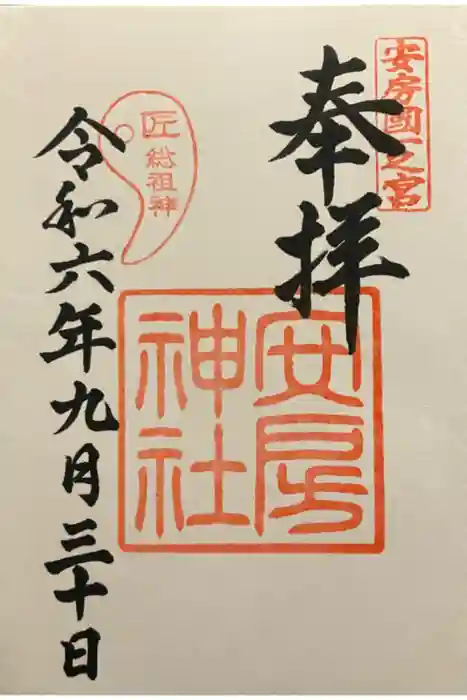 安房國一之宮
奉拝
安房
神社
匠
総祖神
令和六年九月三十日